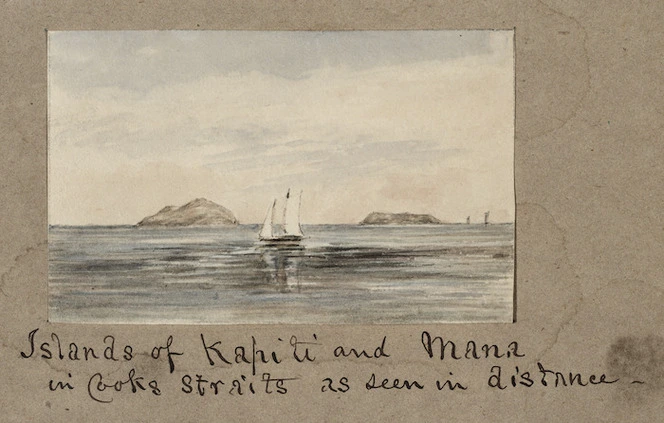 Islands of Kapiti and Mana
in Cooks Straits as seen in distance -